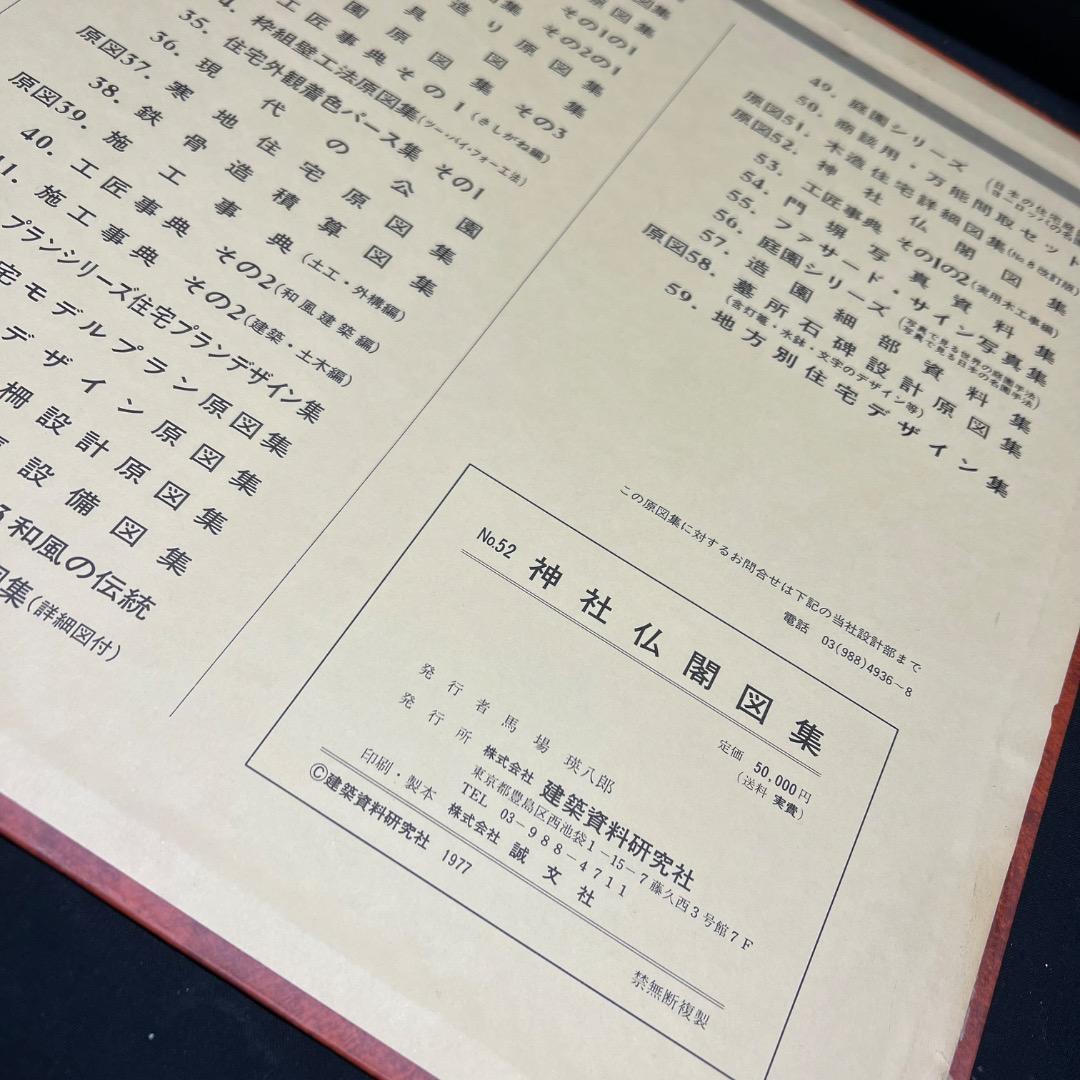 図集
園原図
具図集
造り原図集
工匠事典その1(さしがね編)
枠組壁工法原図集(ツー・バイ・フォー工法)
35. 住宅外観着色パース集 その1
36. 現代の公園
原図37. 寒地住宅原図集
38. 鉄骨造積算図集
原図39. 施工事典(土工・外構編)
40. 工匠事典 その2(和風建築編)
施工事典 その2(建築・土木編)
プランシリーズ住宅プランデザイン集
宅モデルプラン原図集
デザイン原図集
柵設計原図集
設備図集
和風の伝統
図集(詳細図付)
その1の1
その2の1
集 その3
49. 庭園シリーズ
50. 商談用・万能間取セット
原図51. 木造住宅詳細図集(No.8改訂版)
原図52. 神社仏閣図集
53. 工匠事典 その1の2(実用木工事編)
54. 門塀写真資料集
55. ファサード・サイン写真集
56. 庭園シリーズ(写真で見る世界の庭園手法 写真で見る日本の名園手法)
57. 造園細部資料集
原図58. 墓所石碑設計原図集
(含灯籠・水鉢・文字のデザイン等)
59. 地方別住宅デザイン集
この原図集に対するお問合せは下記の当社設計部まで
電話 03(988)4936~8
No.52 神社仏閣図集
定価 50,000円
(送料 実費)
発行者 馬場瑛八郎
発行所 株式会社 建築資料研究社
東京都豊島区西池袋1-15-7藤久西3号館7F
TEL 03-988-4711
印刷・製本 株式会社 誠文社
©建築資料研究社 1977
禁無断複製